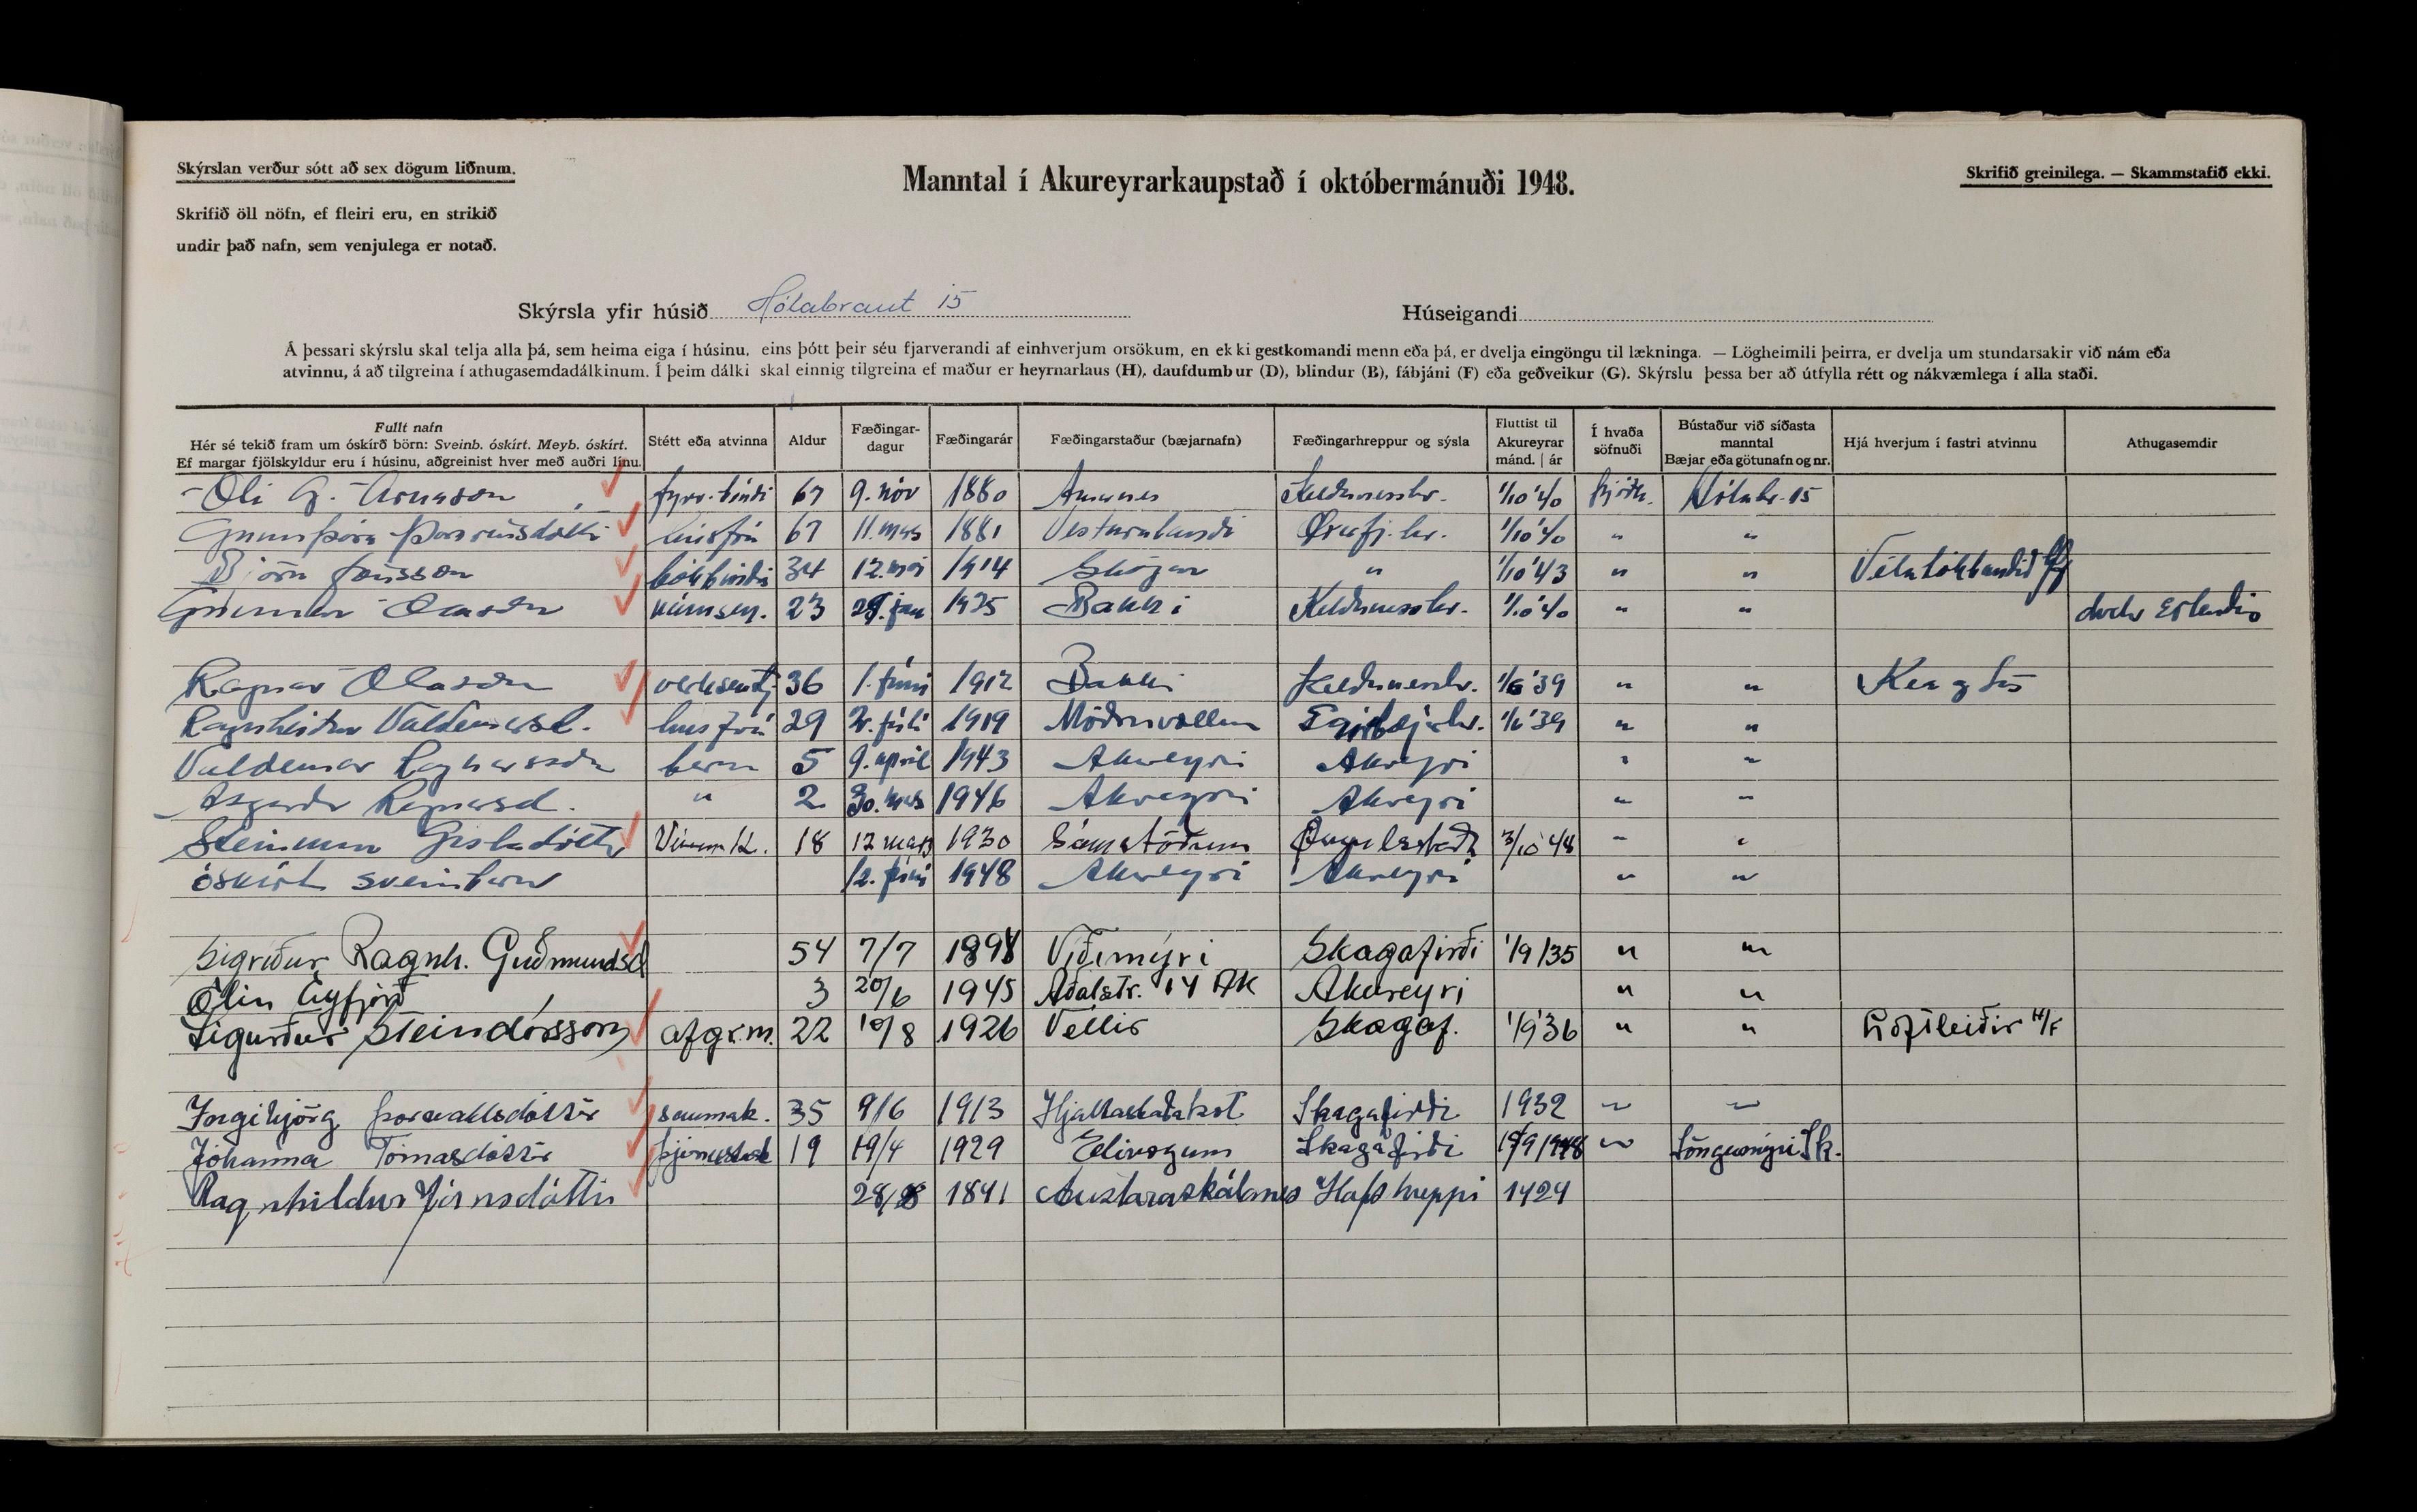 Skýrslan verður sótt að sex dögum liðnum.
Manntal í Akureyrarkaupstað í októbermánuði 1948.
Skrifið greinilega. — Skammstafið ekki.
Skrifið öll nöfn, ef fleiri eru, en strikið
undir það nafn, sem venjulega er notað.
Skýrsla yfir húsið Hólabraut 15 Húseigandi
Á þessari skýrslu skal telja alla þá, sem heima eiga í húsinu, eins þótt þeir séu fjarverandi af einhverjum orsökum, en ekki gestkomandi menn eða þá, er dvelja eingöngu til lækninga. — Lögheimili þeirra, er dvelja um stundarsakir við nám eða
atvinnu, á að tilgreina í athugasemdadálkinum. Í þeim dálki skal einnig tilgreina ef maður er heyrnarlaus (H), daufdumbur (D), blindur (B), fábjáni (F) eða geðveikur (G). Skýrslu þessa ber að útfylla rétt og nákvæmlega í alla staði.
Fullt nafn
Hér sé tekið fram um óskírð börn: Sveinb. óskírt. Meyb. óskírt.
Ef margar fjölskyldur eru í húsinu, aðgreinist hver með auðri línu.
Stétt eða atvinna
Aldur
Fæðingar-
dagur
Fæðingarár
Fæðingarstaður (bæjarnafn)
Fæðingarhreppur og sýsla
Fluttist til
Akureyrar
mánd. | ár
Í hvaða
söfnuði
Bústaður við síðasta
manntal
Bæjar eða götunafn og nr.
Hjá hverjum í fastri atvinnu
Athugasemdir
Óli G. Árnason fyrv. bóndi 67 9. nóv 1880 Keldunesshr. 1/10 '40 þjóðk. Hólabr. 15
húsfrú 67 11. mars 1881 1/10 '40 " "
Björn Jónsson bókbindi 34 12. maí 1914 Skógar " 1/10 '43 " "
Gunnar Ólason námsm. 23 1925 Bakki Keldunesshr. 1/10 '40 " "
Ragnar Ólason 36 1. júní 1912 Bakki Keldunesshr. 1/6 '39 " "
Ragnheiður Valdemarsd. húsfrú 29 2. júlí 1919 Möðruvellum 1/6 '39 " "
Valdemar Ragnarsson barn 5 9. apríl 1943 Akureyri Akureyri " "
Ásgerður Ragnarsd. " 2 30. mars 1946 Akureyri Akureyri " "
Steinunn Gísladóttir 18 12 mars 1930 Öngulstaðh 3/10 '48 " "
óskírt sveinbarn 12. júní 1948 Akureyri Akureyri " "
Sigríður Ragnh. Guðmundsd 54 7/7 1894 Víðimýri Skagafirði 1/9/35 " "
Ólin Eyfjörð 3 20/6 1945 Aðalstr. 14 AK Akureyri " "
Sigurður Steindórsson afgr.m. 22 10/8 1926 Vellir Skagaf. 1/9 '36 " " Loftleiðir H/F
Ingibjörg Þorvaldsdóttir saumak. 35 9/6 1913 Hjaltastaðakot Skagafirði 1932 " "
Jóhanna Tómasdóttir 19 19/4 1929 Elivogum Skagafirði "
Ragnhildur Jónsdóttir 1841 Hafshreppi 1924